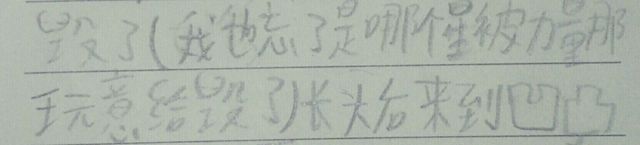 毁了(我也忘了是哪个星被力量那
玩意给毁了)长大后来到凹凸